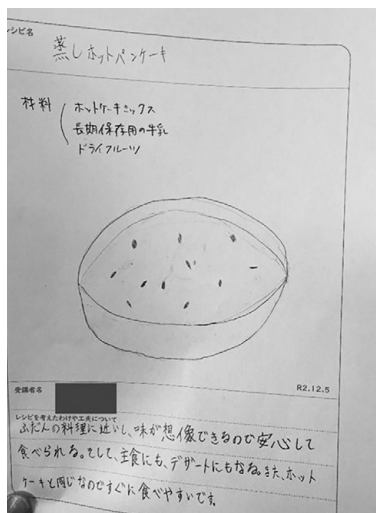 レシピ名
蒸しホットパンケーキ
材料
ホットケーキミックス
長期保存用の牛乳
ドライフルーツ
受講者名
R2.12.5
レシピを考えたわけや工夫について
ふだんの料理に近いし、味が想像できるので安心して
食べられる。そして、主食にも、デザートにもなる。また、ホット
ケーキと同じなのですぐに食べやすいです。